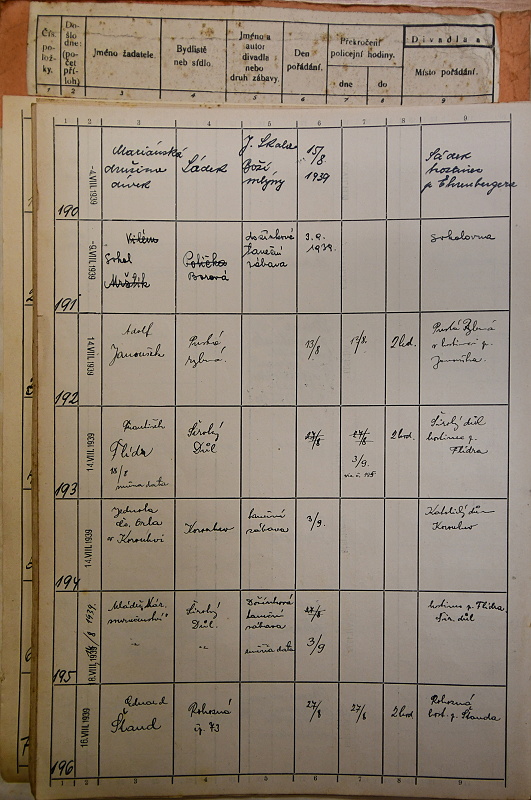 Čís. polož-ky.
Do-šlo dne: (počet příloh)
Jméno žadatele.
Bydliště
neb sídlo.
Jméno a
autor
divadla
nebo
druh zábavy.
Den
pořádání.
Překročení
policejní hodiny.
dne
do
Divadla a
Místo pořádání.
1 2 3 4 5 6 7 8 9
1 2 3 4 5 6 7 8 9
190
-4.VIII.1939
Mariánská
družina
dívek
Sádek
J. Skala
Boží
mlýny
15/8
1939
Sádek
hostinec
p. Ehrenbergera
191
-9.VIII.1939
Vilém
Sokol
Mrštík
Polička
Borová
dožínková
taneční
zábava
3.9.
1939.
sokolovna
192
14.VIII.1939
Adolf
Janoušek
Pustá
rybná.
13/8
13/8.
2 hod.
Pustá Rybná
v hostinci p.
Janouška.
193
14.VIII.1939
František
Flídr
18/8
změna data
Široký
Důl
27/8
27/8
3/9.
viz č. 195
2 hod.
Široký důl
hostinec p.
Flídra
194
14.VIII.1939
Jednota
čs. Orla
v Korouhvi
Korouhev
taneční
zábava
3/9.
Katolický dům
Korouhev
195
14/8 1939.
18.VIII.1939
„Mladé Nár.
souručenství"
Široký
Důl.
Dožínková
taneční
zábava
změna data
27/8
3/9
hostinec p. Flídra.
Šir. důl
196
16.VIII.1939
Eduard
Štaud
Rohozná
čp. 73
27/8
27/8
2 hod
Rohozná
host. p. Štauda
1 2 3 4 5 6 7 8 9